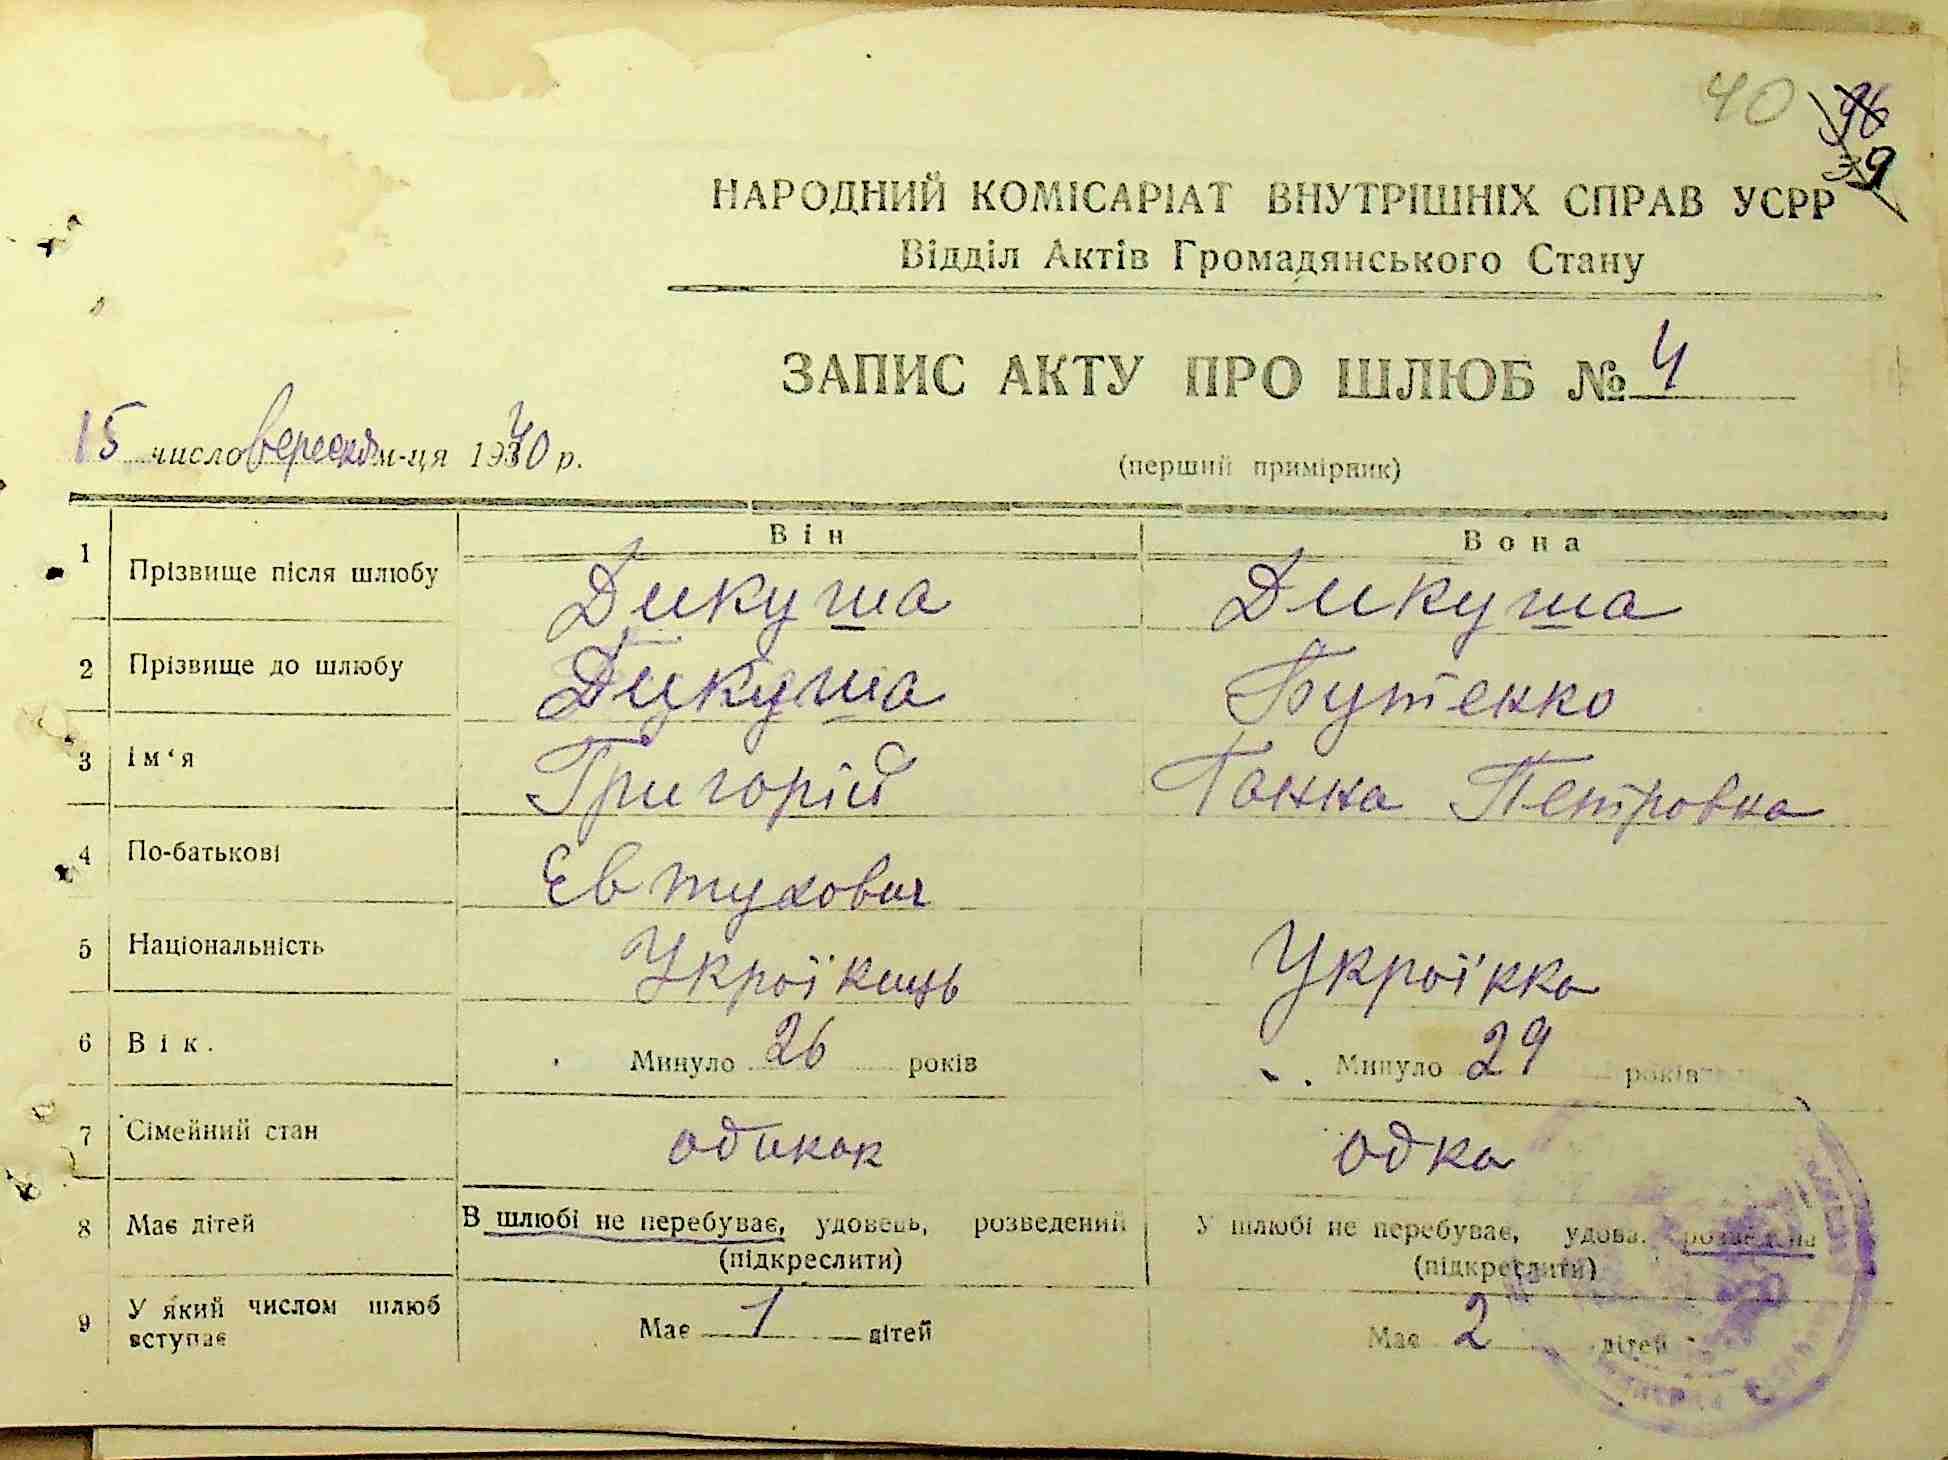 40 96
39
НАРОДНИЙ КОМІСАРІАТ ВНУТРІШНІХ СПРАВ УСРР
Відділ Актів Громадянського Стану
ЗАПИС АКТУ ПРО ШЛЮБ № 4
15 число вересня м-ця 1940 р.
(перший примірник)
Він Вона
1 Прізвище після шлюбу Дикуша Дикуша
2 Прізвище до шлюбу Дикуша Бутенко
3 Ім‘я Григорій Ганна Петровна
4 По-батькові Евтухович
5 Національність Українець Українка
6 Вік. Минуло 26 років Минуло 29 років
7 Сімейний стан одинак одна
8 Має дітей В шлюбі не перебуває, удовець, розведений У шлюбі не перебуває, удова, розведена
(підкреслити) (підкреслити)
9 У який числом шлюб вступає Має 1 дітей Має 2 дітей